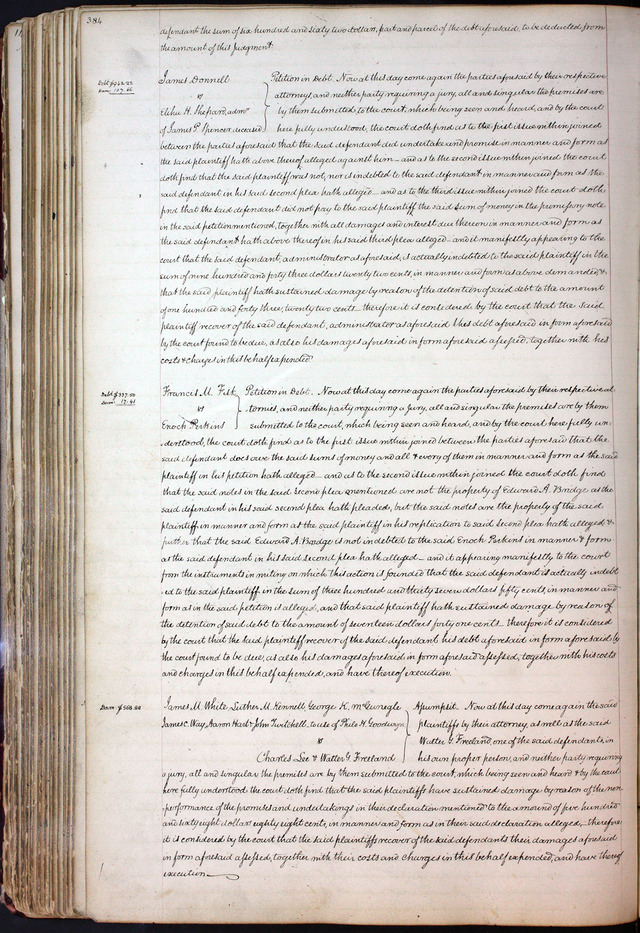 384
defendant the sum of six hundred and sixty two dollars, part and parcel of the debt aforesaid, to be deducted from
the amount of this Judgment.
Debt $943.22
Dam: 143.22
James Donnell
vs
Elihu H. Shepard, admr
of James P. Spencer, deceased
Petition in Debt. Now at this day come again the parties aforesaid by their respective
attorneys, and neither party requiring a jury, all and singular the premises are
by them submitted to the court, which being seen and heard, and by the court
here fully understood, the court doth find as to the first issue within joined
between the parties aforesaid that the said defendant did undertake and promise in manner and form as
the said plaintiff hath above thereof alleged against him – and as to the second issue within joined the court
doth find that the said plaintiff was not, nor is indebted to the said defendant in manner and form as the
said defendant in his said second plea hath alleged – and as to the third issue within joined the court doth
find that the said defendant did not pay to the said plaintiff the said sum of money in the promissory note
in the said petition mentioned, together with all damages and interest due thereon, in manner and form as
the said defendant hath above thereof in his said third plea alleged – and it manifestly appearing to the
court that the said defendant, administrator as aforesaid, is actually indebted to the said plaintiff in the
sum of nine hundred and forty three dollars twenty two cents, in manner and form as above demanded, &
that the said plaintiff hath sustained damage by reason of the detention of said debt to the amount
of one hundred and forty three, twenty two cents – therefore it is considered by the court that the said
plaintiff recover of the said defendant, administrator as aforesaid, his debt aforesaid in form aforesaid
by the court found to be due, as also his damages aforesaid in form aforesaid assessed, together with his
costs & charges in this behalf expended.
Debt $337.50
Dam: 17.41
Francis M. Fisk
vs
Enoch Perkins
Petition in Debt. Now at this day come again the parties aforesaid by their respective at
tornies, and neither party requiring a jury, all and singular the premises are by them
submitted to the court, which being seen and heard, and by the court here fully un
derstood, the court doth find as to the first issue within joined between the parties aforesaid that the
said defendant does owe the said sums of money and all & every of them in manner and form as the said
plaintiff in his petition hath alleged – and as to the second issue within joined the court doth find
that the said notes in the said second plea mentioned are not the property of Edward A. Bridge as the
said defendant in his said second plea hath pleaded, but the said notes are the property of the said
plaintiff in manner and form as the said plaintiff in his replication to said second plea hath alleged &
further that the said Edward A. Bridge is not indebted to the said Enoch Perkins in manner & form
as the said defendant in his said second plea hath alleged – and it appearing manifestly to the court
from the instruments in writing on which this action is founded that the said defendant is actually indebt
ed to the said plaintiff in the sum of three hundred and thirty seven dollars fifty cents, in manner and
form as in the said petition is alleged, and that said plaintiff hath sustained damage by reason of
the detention of said debt to the amount of seventeen dollars forty one cents – therefore it is considered
by the court that the said plaintiff recover of the said defendant his debt aforesaid in form aforesaid by
the court found to be due, as also his damages aforesaid in form aforesaid assessed, together with his costs
and charges in this behalf expended, and have thereof execution.
Dam: $568.88
James M. White, Luther M. Kennell, George K. McGunegle
James C. Way, Aaron Hart & John Twitchell, to use of Philo H. Goodwyn
vs
Charles Lee & Walter G. Freeland
Assumpsit. Now at this day come again the said
plaintiffs by their attorney, as well as the said
Walter G. Freeland, one of the said defendants, in
his own proper person, and neither party requiring
a jury, all and singular the premises are by them submitted to the court, which being seen and heard & by the court
here fully understood the court doth find that the said plaintiffs have sustained damage by reason of the non
performance of the promises and undertakings in their declaration mentioned to the amount of five hundred
and sixty eight dollars eighty eight cents, in manner and form as in their said declaration alleged, – therefore
it is considered by the court that the said plaintiffs recover of the said defendants their damages aforesaid
in form aforesaid assessed, together with their costs and charges in this behalf expended, and have thereof
execution.